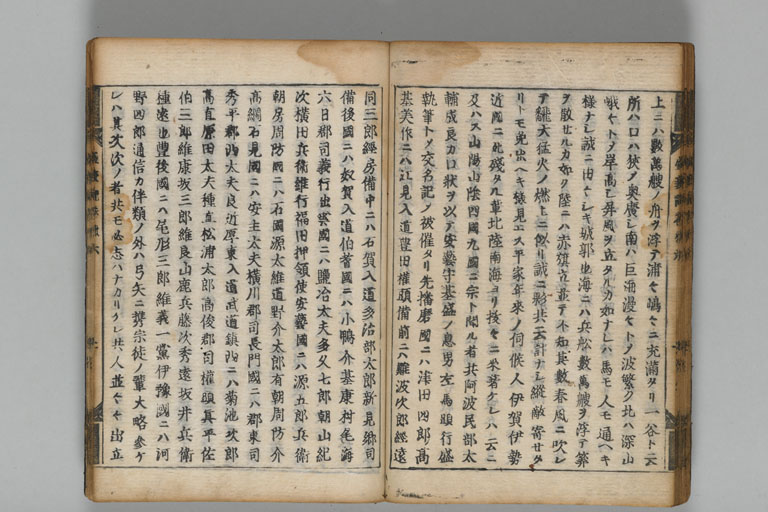 上ニハ數萬艘ノ舟ヲ浮テ浦々嶋々ニ充滿タリ一谷ト云
所ハ口ハ狹ク奥廣シ南ハ巨海漫々トノ波繁ク北ハ深山
峨々トノ岸高シ屏風ヲ立タルカ如ナレハ馬モ人モ通ヘキ
樣ナシ誠ニ由々シキ城郭也海ニハ兵舩數萬艘ヲ浮テ算
ヲ散セルカ如ク陸ニハ赤旗立並テ不知其數春風ニ吹レ
テ飜天猛火ノ燃上ニ似リ誠ニ夥共云計ナシ縱敵寄サタ
リトモ兎出ヘキ樣見エス平家年來ノ伺候人伊賀伊勢
近國ニ死殘タル輩北陸南海ヨリ拔々ニ來著ケレハ云ニ
及ハス山陽山陰四國九國ニ宗ト聞ル者共阿波民部太
輔成良カ口狀ヲ以テ安藝守基盛ノ息男左馬頭行盛
執筆トノ交名記メ被催タリ先播磨國ニハ津田四郎高
基美作ニハ江見入道豐田權頭備前ニハ難波次郎經遠
同三郎經房備中ニハ石賀入道多治部太郎新見郷司
備後國ニハ奴賀入道伯耆國ニハ小鴨介基康村尾海
六日郡司義行出雲國ニハ鹽冶大夫多久七郎朝山紀
次横田兵衛維行福田押領使安藝國ニハ源五郎兵衛
朝房周防國ニハ石國源太維道野介太郎有朝周防介
高綱石見國ニハ安主大夫横川郡司長門國ニハ郡東司
秀平郡西大夫良近厚東入道武道鎮西ニハ菊池次郎
高直原田大夫種直松浦太郎高俊郡司權頭眞平佐
伯三郎維康坂三郎維良山鹿兵藤次秀遠坂井兵衛
種遠也豐後國ニハ尾形三郎維義一黨伊豫國ニハ河
野四郎通信カ伴類ノ外ハ弓矢ニ携宗徒ノ輩大略參ケ
レハ其次次ノ者共モ ハナカリケレ共人並々々出立